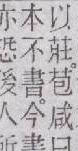 以莊。苞咸曰
本不書。今書
亦恐後人近